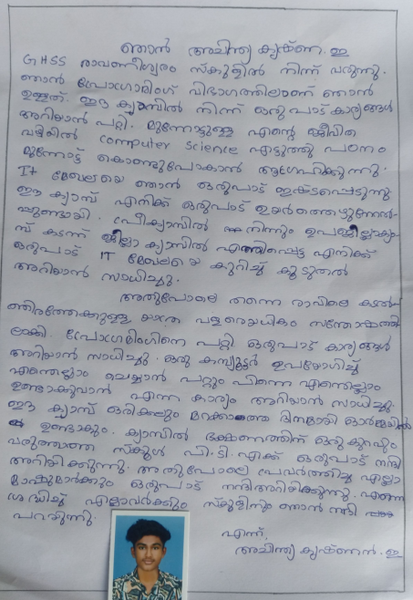 ഞാൻ അചിന്ത്യ കൃഷ്ണ. ഇ
GHSS രാവണീശ്വരം സ്കൂളിൽ നിന്ന് വരുന്നു.
ഞാൻ പ്രോഗ്രാമിംഗ് വിഭാഗത്തിലാണ് ഞാൻ
ഉള്ളത്. ഈ ക്യാമ്പിൽ നിന്ന് ഒരുപാട് കാര്യങ്ങൾ
അറിയാൻ പറ്റി. മുന്നോട്ടുള്ള എന്റെ ജീവിത
വഴിയിൽ computer science എടുത്തു പഠനം
മുന്നോട്ട് കൊണ്ടുപോകാൻ ആഗ്രഹിക്കുന്നു.
IT മേഖലയെ ഞാൻ ഒരുപാട് ഇഷ്ടപ്പെടുന്നു
ഈ ക്യാമ്പ് എനിക്ക് ഒരുപാട് ഉയർത്തെഴുന്നേൽ-
പ്പുണ്ടായി. നിന്നും ഉപജില്ലാക്യാമ്പ്
കടന്ന് ജില്ലാ ക്യാമ്പിൽ എത്തിപ്പെട്ട എനിക്ക്
ഒരുപാട് IT മേഖലയെ കുറിച്ച് കൂടുതൽ
അറിയാൻ സാധിച്ചു.
അതുപോലെ തന്നെ രാവിലെ കടൽ
തീരത്തേക്കുള്ള യാത്ര വളരെയധികം സന്തോഷത്തി
ലാക്കി. പ്രോഗ്രമിംഗിനെ പറ്റി ഒരുപാട് കാര്യങ്ങൾ
അറിയാൻ സാധിച്ചു. ഒരു കമ്പ്യൂട്ടർ ഉപയോഗിച്ച്
എന്തെല്ലാം ചെയ്യാൻ പറ്റും പിന്നെ എന്തെല്ലാം
ഉണ്ടാക്കുവാൻ എന്ന കാര്യം അറിയാൻ സാധിച്ചു.
ഈ ക്യാമ്പ് ഒരിക്കലും മറക്കാത്ത ദിനമായി ഓർമ്മയിൽ
ഉണ്ടാകും. ക്യാമ്പിൽ ഭക്ഷണത്തിന് ഒരു കുറവും
വരുത്താത്ത സ്കൂൾ പി.ടി.എക്ക് ഒരുപാട് നന്ദി
അറിയിക്കുന്നു. അതുപോലെ പ്രവർത്തിച്ച എല്ലാ
മാഷുമാർക്കും ഒരുപാട് നന്ദിഅറിയിക്കുന്നു. എന്നെ
ശ്രദ്ധിച്ച എല്ലാവർക്കും സ്കൂളിനും ഞാൻ നന്ദി
പറയുന്നു.
എന്ന്,
അചിന്ത്യ കൃഷ്ണൻ. ഇ